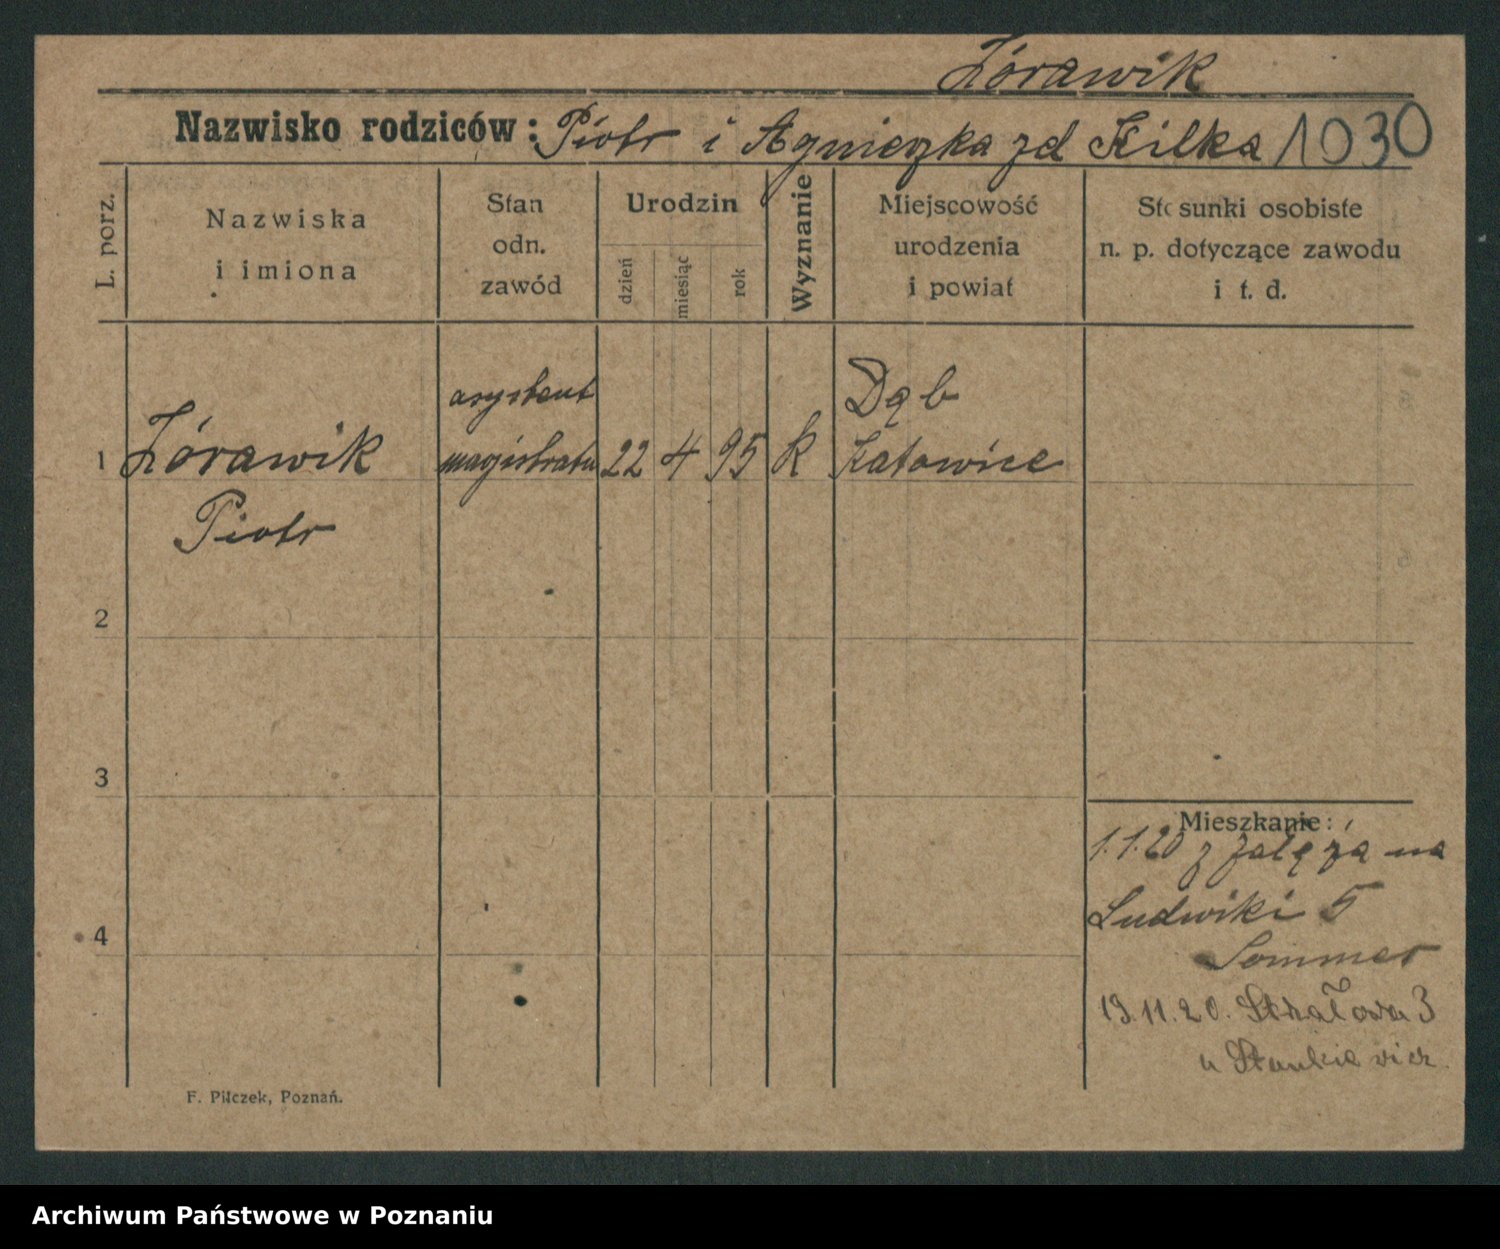 Żórawik
Nazwisko rodziców: Piotr i Agnieszka zd Kilka 1030
L. porz.
Nazwiska
i imiona
Stan
odn.
zawód
Urodzin
dzień
miesiąc
rok
Wyznanie
Miejscowość
urodzenia
i powiat
Stosunki osobiste
n. p. dotyczące zawodu
i t. d.
1 Żórawik
Piotr
asystent
magistratu
22 4 95 k
Dąb
Katowice
2
3
4
Mieszkanie:
1.1.20 z Załęża na
Ludwiki 5
Sommer
19.11.20. Strzałowa 3
u Stankiewicz
F. Pilczek, Poznań.
Archiwum Państwowe w Poznaniu